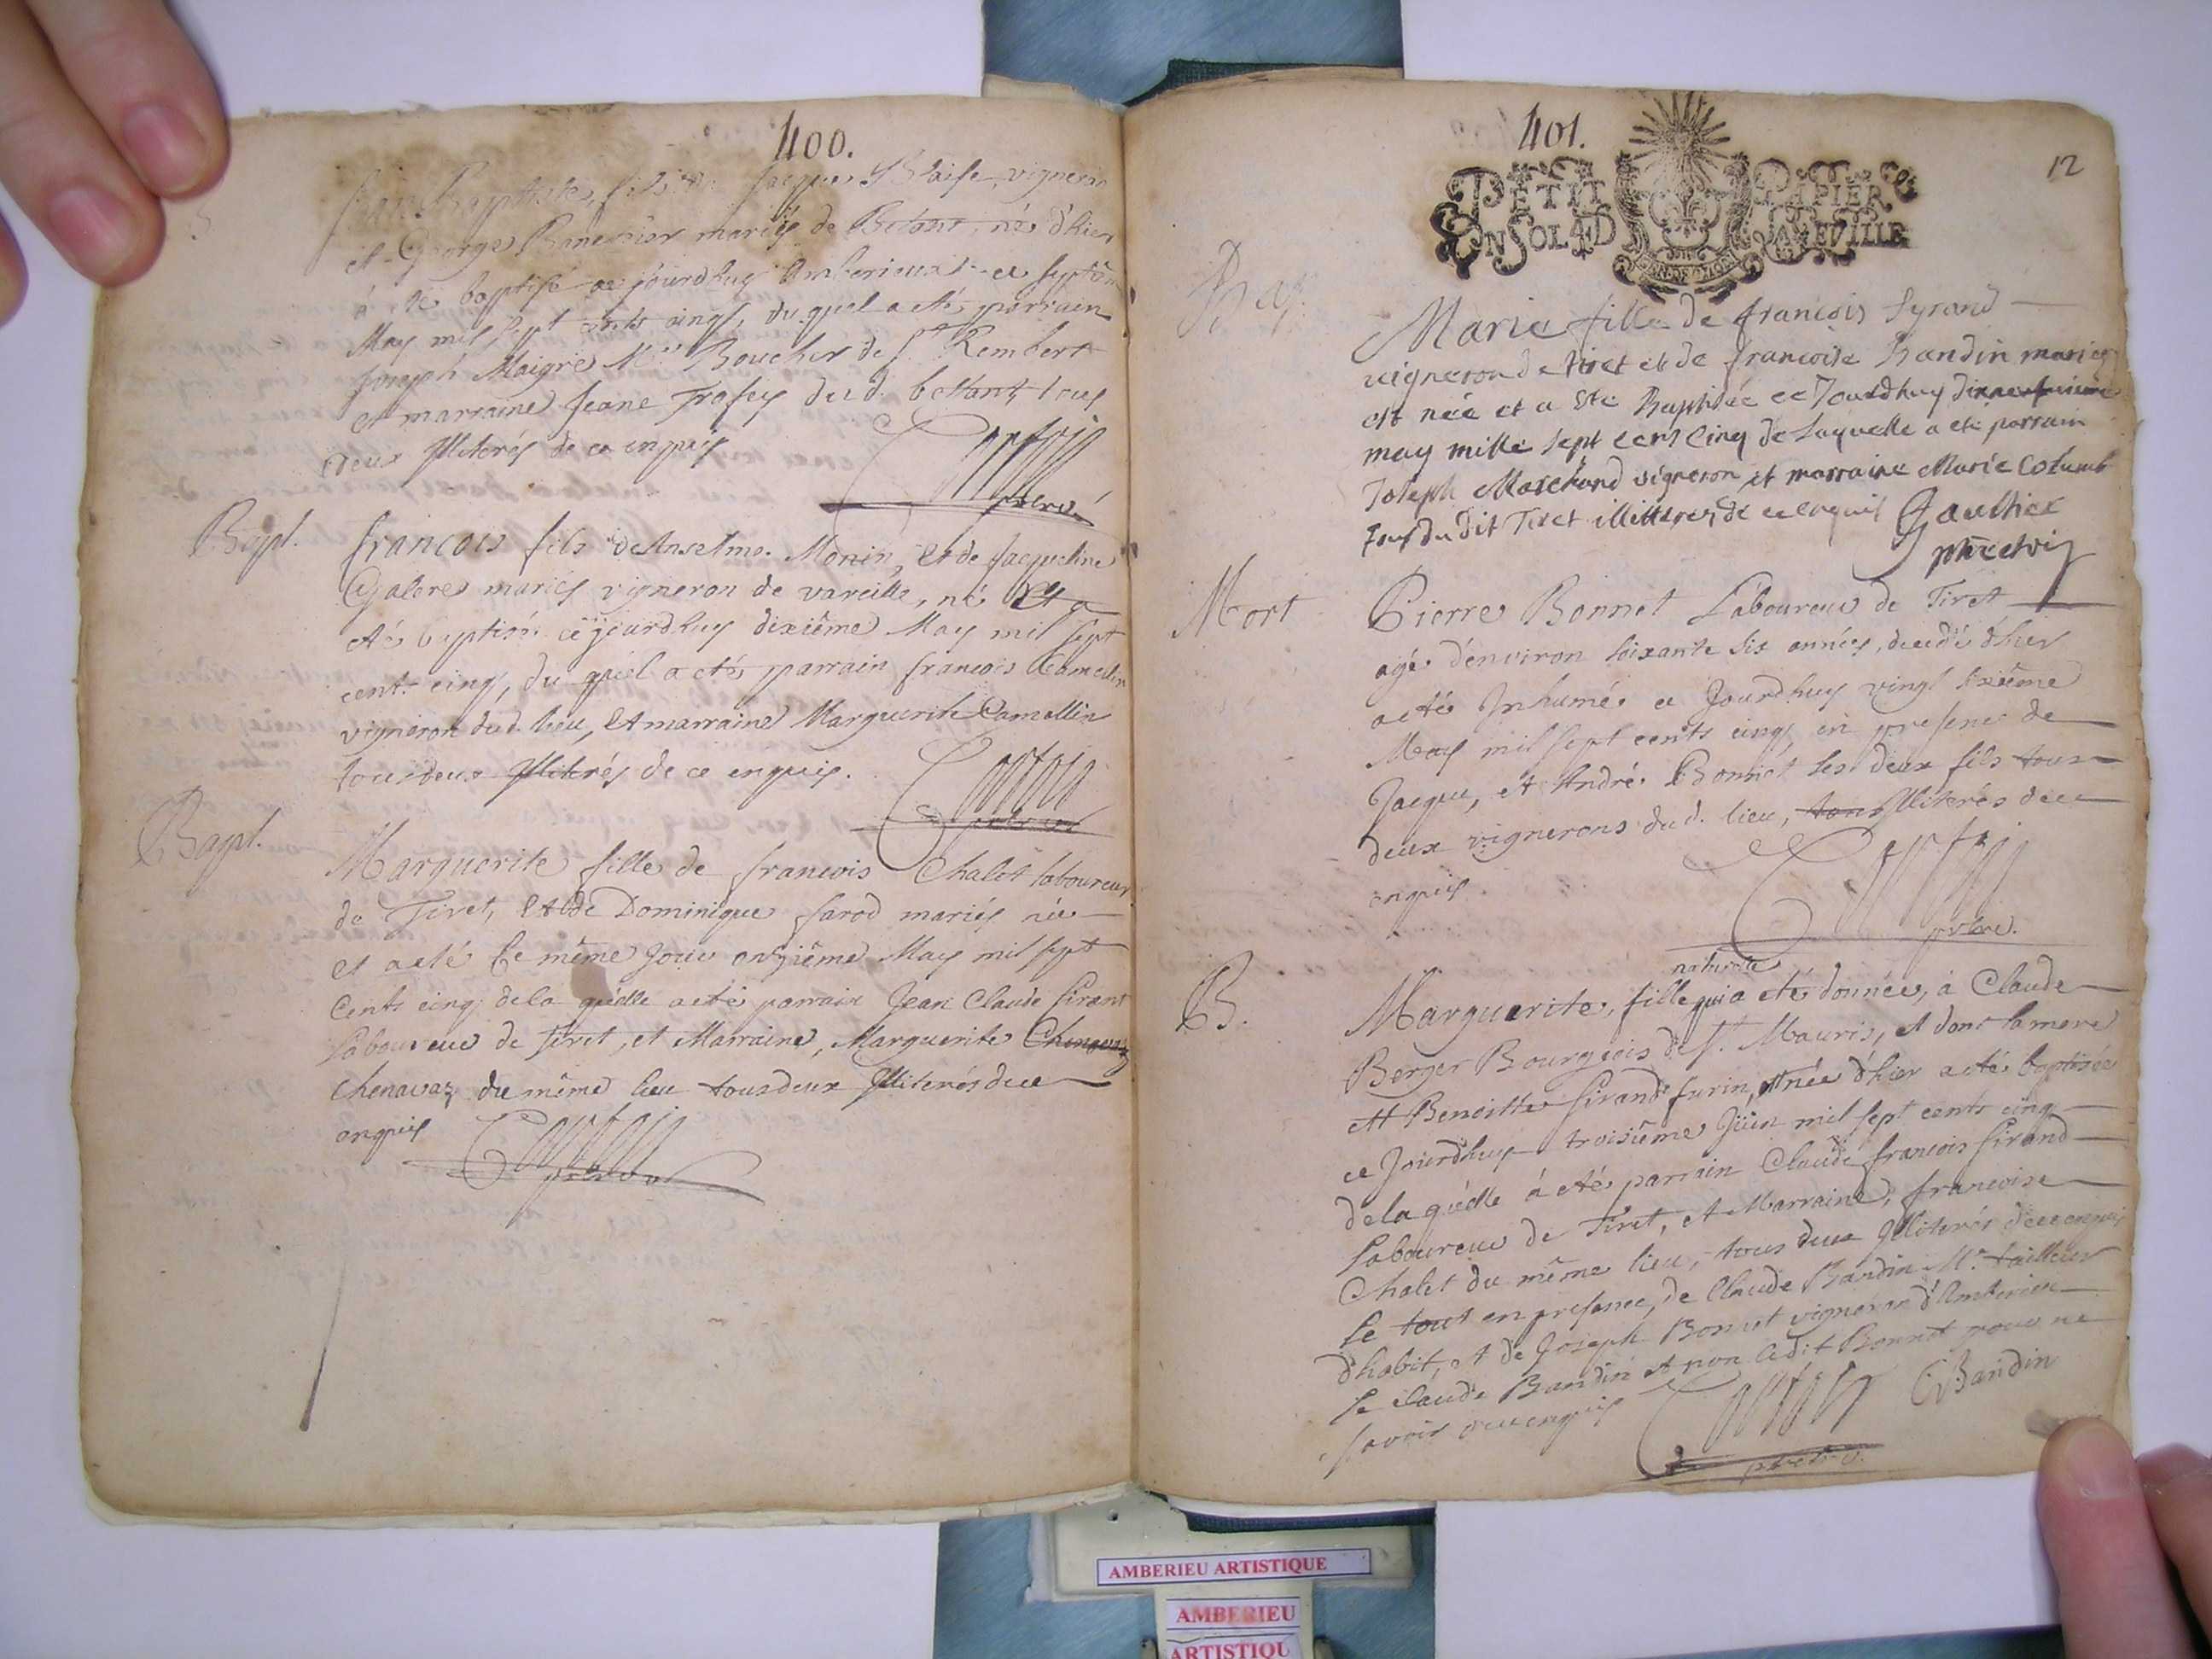 400.
Jean Baptiste, fils de Jacques Blaise, vigneron
et George mariés de Betant, né d'hier
à été baptisé ce jourdhuy Amberieux ce septième
May mil sept cents cinq, du quel a eté parrain
Joseph Maigre Me Boucher de St Rembert
et marraine Jeane Trofey dud. bettant tous
deux Illiterés de ce enquis
prêtre
Bapt.
francois fils de Anselme Monin, et de Jacqueline
mariés vigneron de vareille, né et a
eté baptisé cejourdhuy dixième May mil sept
cents cinq, du quel a eté parrain francois Camellin
vigneron dud. lieu, et marraine Marguerite Camellin
tous deux Illiterés de ce enquis.
Bapt.
Marguerite fille de francois Chalet laboureur
de Tiret, et de Dominique farod mariés née
et a eté le même jour onzième May mil sept
Cents cinq de la quelle a eté parrain Jean Claude Sirant
laboureur de Tiret, et Marraine, Marguerite Chenavaz
Chenavaz du même lieu tous deux Illiterés de ce
enquis
401.
12
PETIT PAPIER
UN SOL 4D LA FEUILLE
Bap.
Marie fille de francois Syrand
vigneron de tiret et de francoise Bandin mariez
est née et a ete Baptisée ce Jourdhuy dixneufvieme
may mille sept cens cinq de Laquelle a eté parrain
Joseph Marchand vigneron et marraine Marie Columb
tous du dit Tiret illitterez de ce enquis Gaulthier
Mort
Pierre Bonnet Laboureur de Tiret
agé d'environ soixante six années, decedé d'hier
a eté Inhumé ce Jourdhuy vingt sixième
May mil sept cents cinq en presence de
Jacque, et André Bonnet ses deux fils tous
deux vignerons dud. lieu, tous Illiterés de ce
enquis.
prêtre.
B.
naturele
Marguerite, fille qui a eté donnée, à Claude
Berger Bourgeois de St. Mauris, et dont la mere
est Benoitte Sirand furin, née d'hier a eté baptisée
ce Jourdhuy troisième Juin mil sept cents cinq
de la quelle à eté parrain Claude francois Sirand
Laboureur de Tiret, et Marraine, francoise
Chalet du même lieu, tous deux Illiterés de ce enquis
le tout en presence, de Claude Bandin Me tailleur
d'habit, et de Joseph Bonnet vigneron d'Amberieu
le Claude Bandin et non ledit Bonnet pour ne
savoir de ce enquis
CBandin
AMBERIEU ARTISTIQUE
AMBERIEU
ARTISTIQU